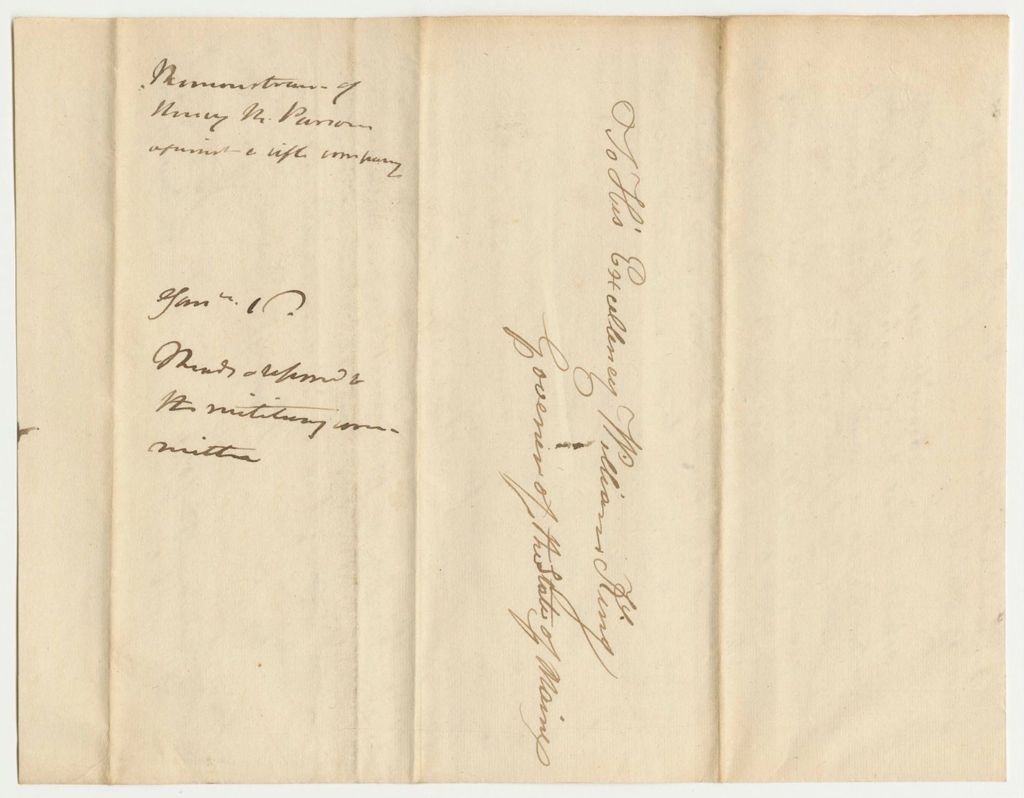 Remonstrance of
Henry M. Parsons
against a rifle company
Jany. 1
Read & referred to
the military com-
mittee
To His Excellency William King
Governor of the State of Maine